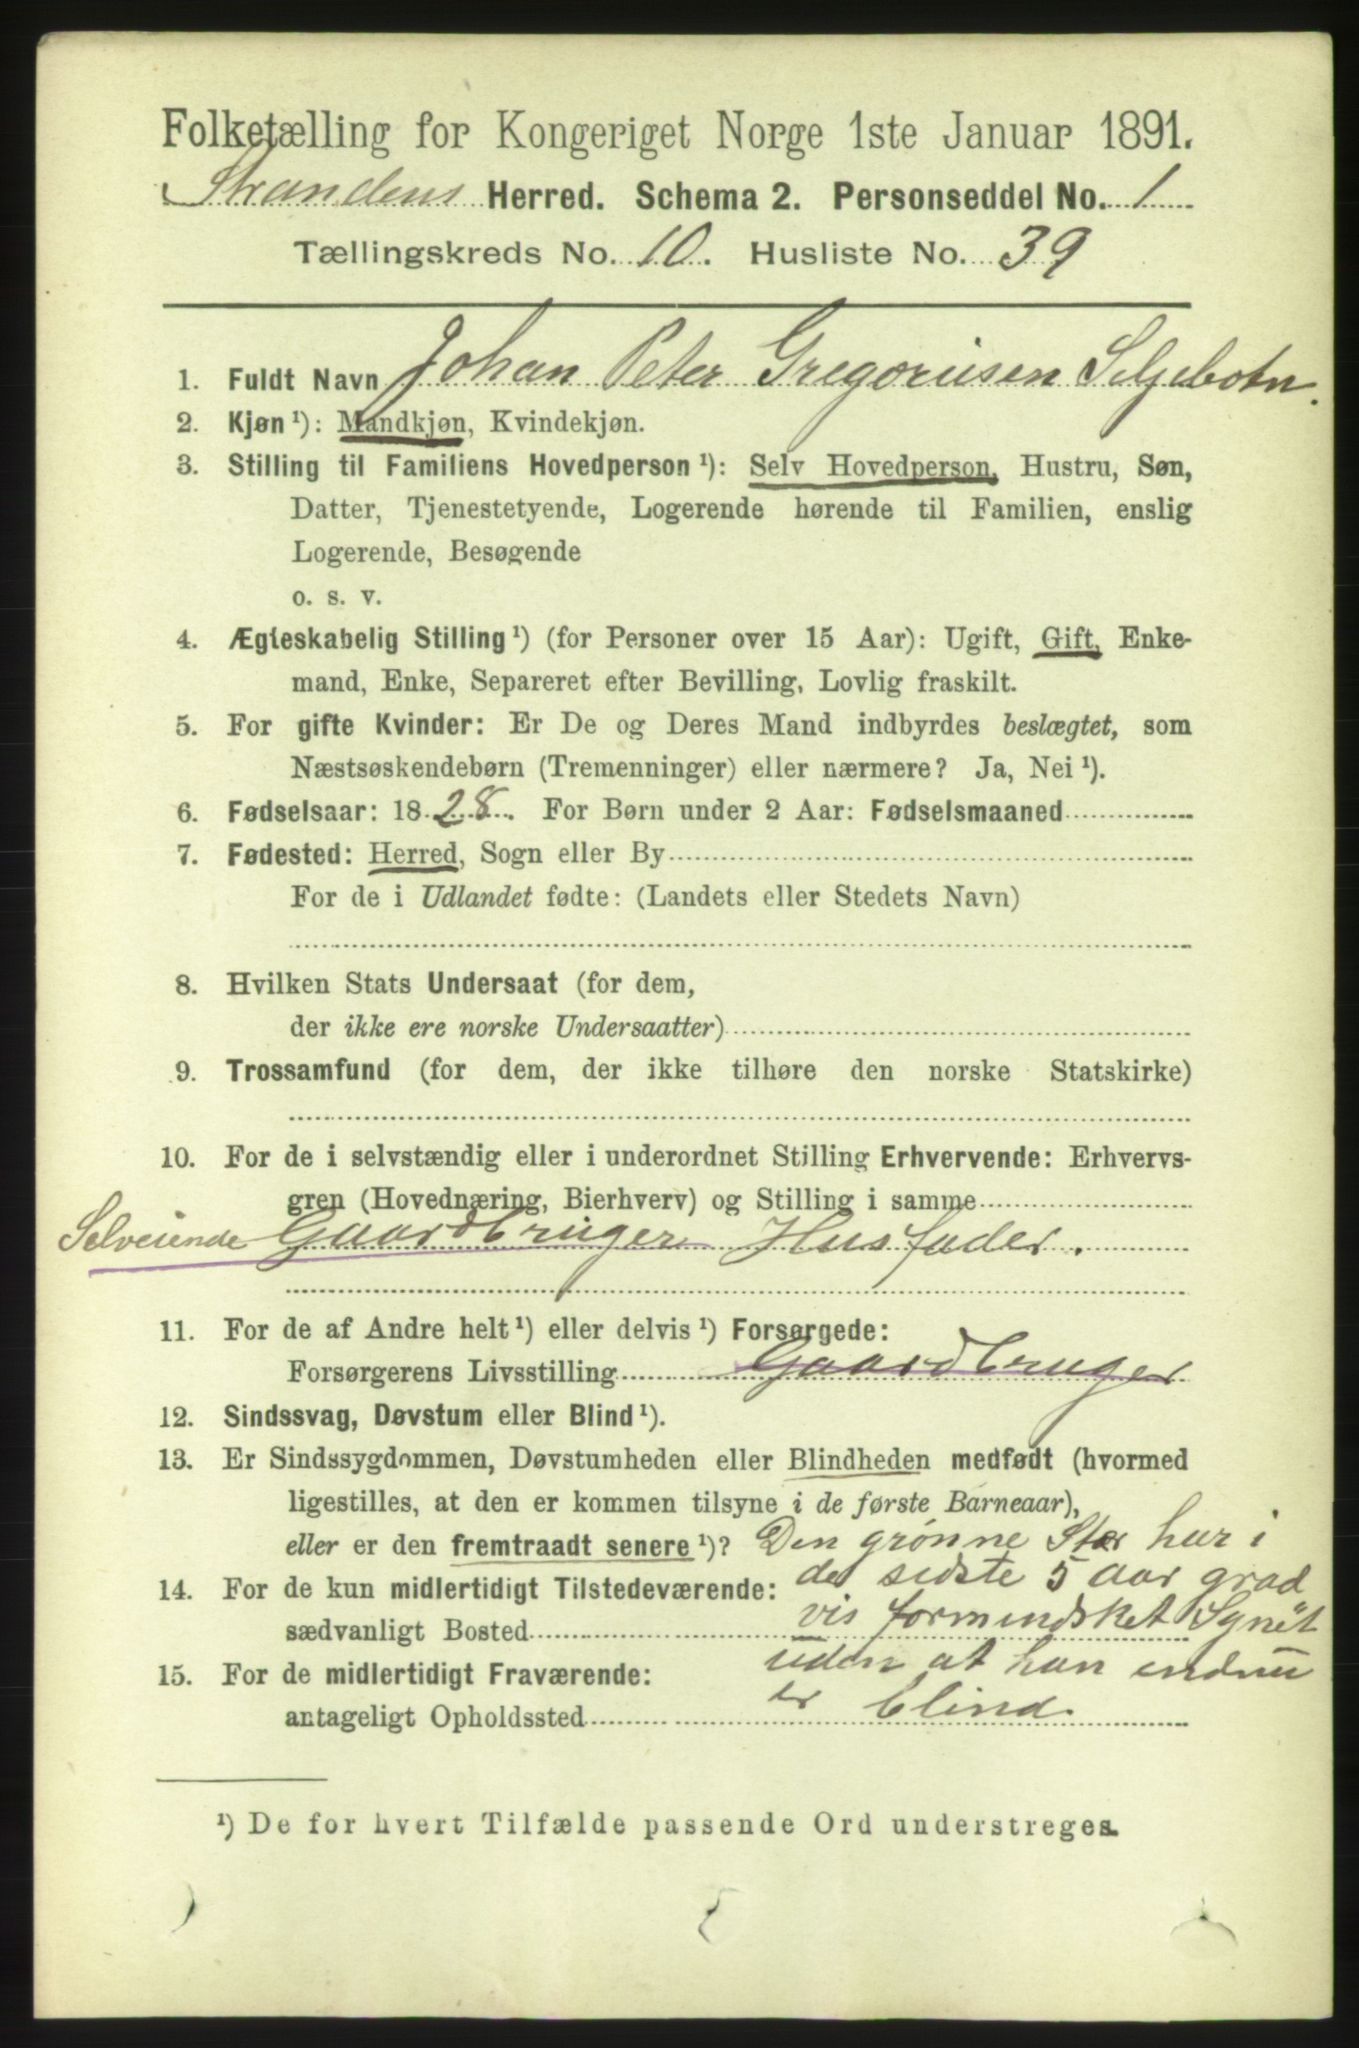 Folketælling for Kongeriget Norge 1ste Januar 1891.
Strandens Herred. Schema 2. Personseddel No. 1
Tællingskreds No. 10. Husliste No. 39
1. Fuldt Navn Johan Peter Gregoriusen Seljebotn.
2. Kjøn ¹): Mandkjøn, Kvindekjøn.
3. Stilling til Familiens Hovedperson ¹): Selv Hovedperson, Hustru, Søn,
Datter, Tjenestetyende, Logerende hørende til Familien, enslig
Logerende, Besøgende
o. s. v.
4. Ægteskabelig Stilling ¹) (for Personer over 15 Aar): Ugift, Gift, Enke-
mand, Enke, Separeret efter Bevilling, Lovlig fraskilt.
5. For gifte Kvinder: Er De og Deres Mand indbyrdes beslægtet, som
Næstsøskendebørn (Tremenninger) eller nærmere? Ja, Nei ¹).
6. Fødselsaar: 1828. For Børn under 2 Aar: Fødselsmaaned
7. Fødested: Herred, Sogn eller By
For de i Udlandet fødte: (Landets eller Stedets Navn)
8. Hvilken Stats Undersaat (for dem,
der ikke ere norske Undersaatter)
9. Trossamfund (for dem, der ikke tilhøre den norske Statskirke)
10. For de i selvstændig eller i underordnet Stilling Erhvervende: Erhvervs-
gren (Hovednæring, Bierhverv) og Stilling i samme
Selveiende Gaardbruger Husfader.
11. For de af Andre helt ¹) eller delvis ¹) Forsørgede:
Forsørgerens Livsstilling Gaardbruger
12. Sindssvag, Døvstum eller Blind ¹).
13. Er Sindssygdommen, Døvstumheden eller Blindheden medfødt (hvormed
ligestilles, at den er kommen tilsyne i de første Barneaar),
eller er den fremtraadt senere ¹)? Den grønne Stær har i
14. For de kun midlertidigt Tilstedeværende: de sidste 5 aar grad
sædvanligt Bosted vis formindsket Synet
15. For de midlertidigt Fraværende: uden at han endnu
antageligt Opholdssted er blind.
¹) De for hvert Tilfælde passende Ord understreges.